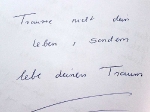 Träume nicht dein
Leben, sondern
lebe deinen Traum